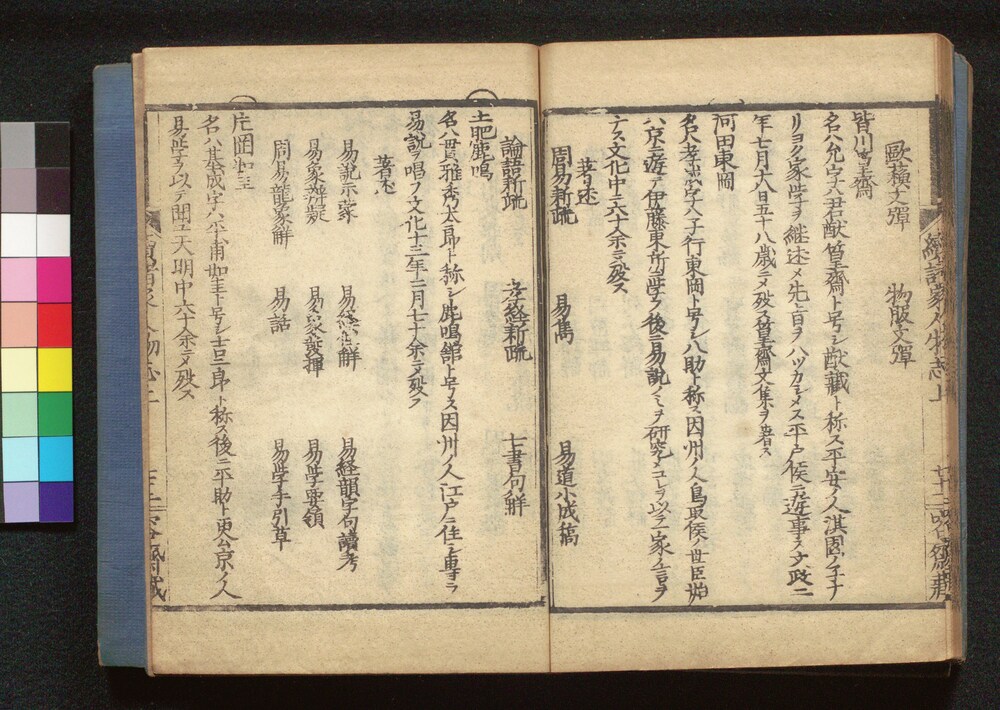 歐穌文彈　物服文彈
皆川篁齋
名ハ允字ハ君猷篁齋ト号シ猷藏ト称ス平安ノ人淇園ノ子ナ
リヨク家学ヲ継述メ先旨ヲハツカシメス平戸侯ニ遊事ス文政二
年七月六日五十八歳ニメ歿ス篁齋文集ヲ著ス
河田東岡
名ハ孝成字ハ子行東岡ト号シ八助ト称ス因州ノ人鳥取侯ノ世臣始
ハ京ニ遊テ伊藤東所ニ学ヒ後ニ易説ノミヲ研究メコレヲ以テ一家ノ言ヲ
ナス文化中六十余ニメ歿ス
著述
周易新疏　易雋　易道小成稿
論語新疏　孝経新疏　七書句解
土肥鹿鳴
名ハ貫雅秀太郎ト称シ鹿鳴舘ト号ス因州ノ人江戸ニ住シ専ラ
易説ヲ唱フ文化十三年三月七十余ニメ歿ス
著述
易説示蒙　易経解　易経韻字句讀考
易象辨疑　易象發揮　易学要領
周易龍象解　易話　易学手引草
片岡如圭
名ハ基成字ハ如圭ト号シ吉三郎ト称ス後ニ平助ト更ム京ノ人
易学ヲ以テ聞エ天明中六十余ニメ歿ス